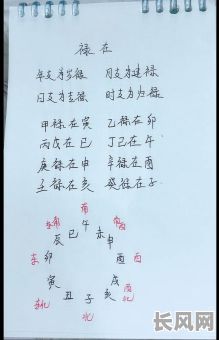 禄在
年支为岁禄 月支为建禄
日支为专禄 时支为归禄
甲禄在寅 乙禄在卯
丙戊在巳 丁己在午
庚禄在申 辛禄在酉
壬禄在亥 癸禄在子
南
东南 西南
巳 午 未
辰 申
东 卯 酉 西
寅 戌
东北 丑 子 亥 西北
北
长风网